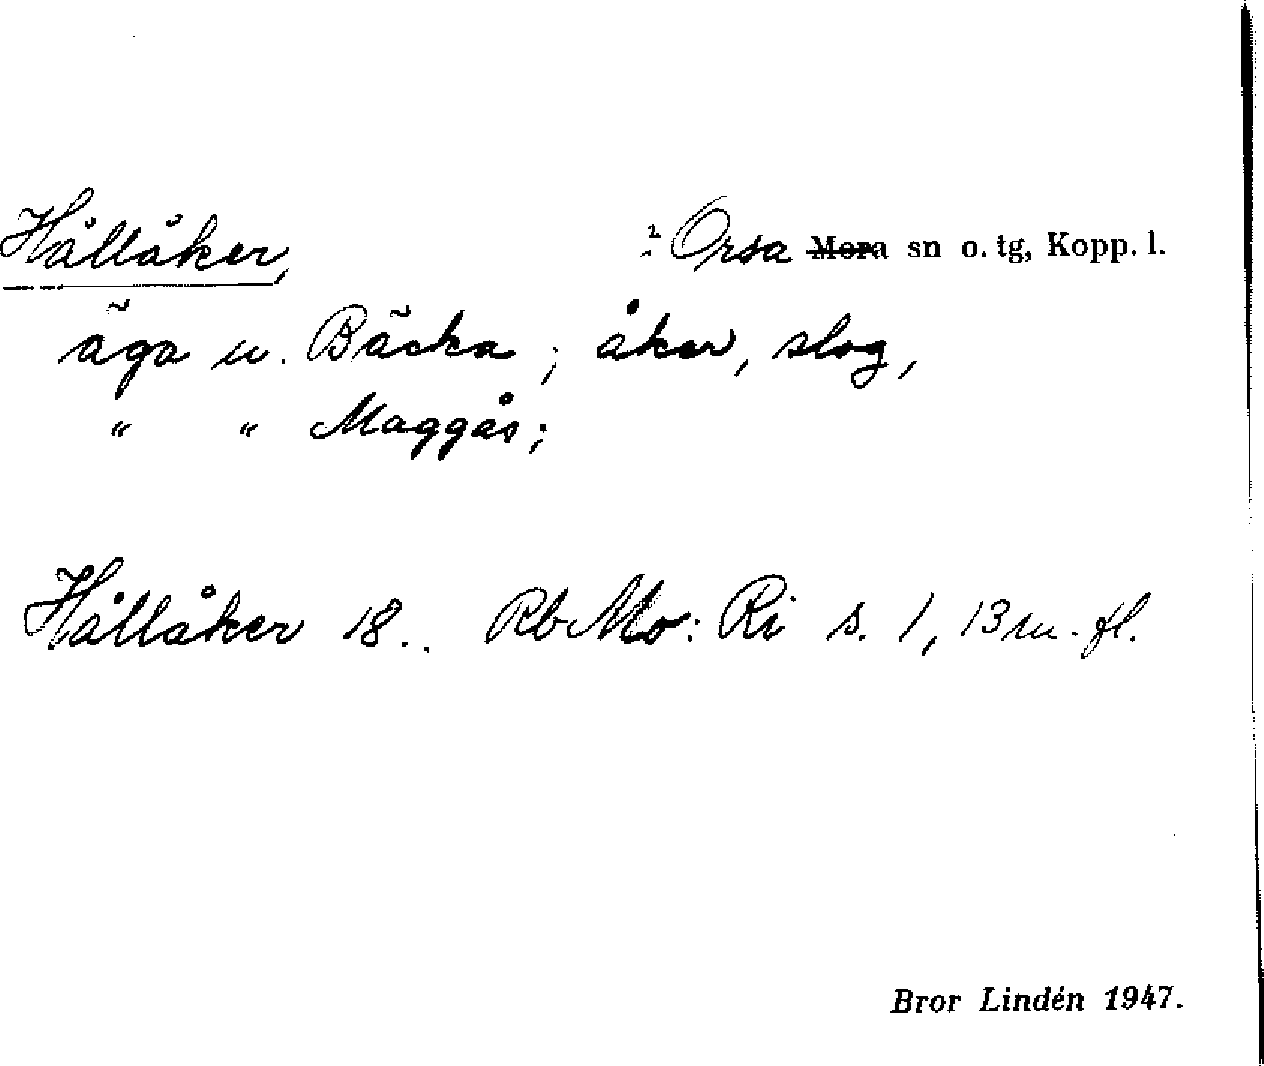 Hållåker, : Orsa Mora sn o. tg, Kopp. l.
äga u. Bäcka; åker, slog,
" " Maggås;
Hållåker 18.. Rb Mo: Ri s. 1, 13 m. fl.
Bror Lindén 1947.